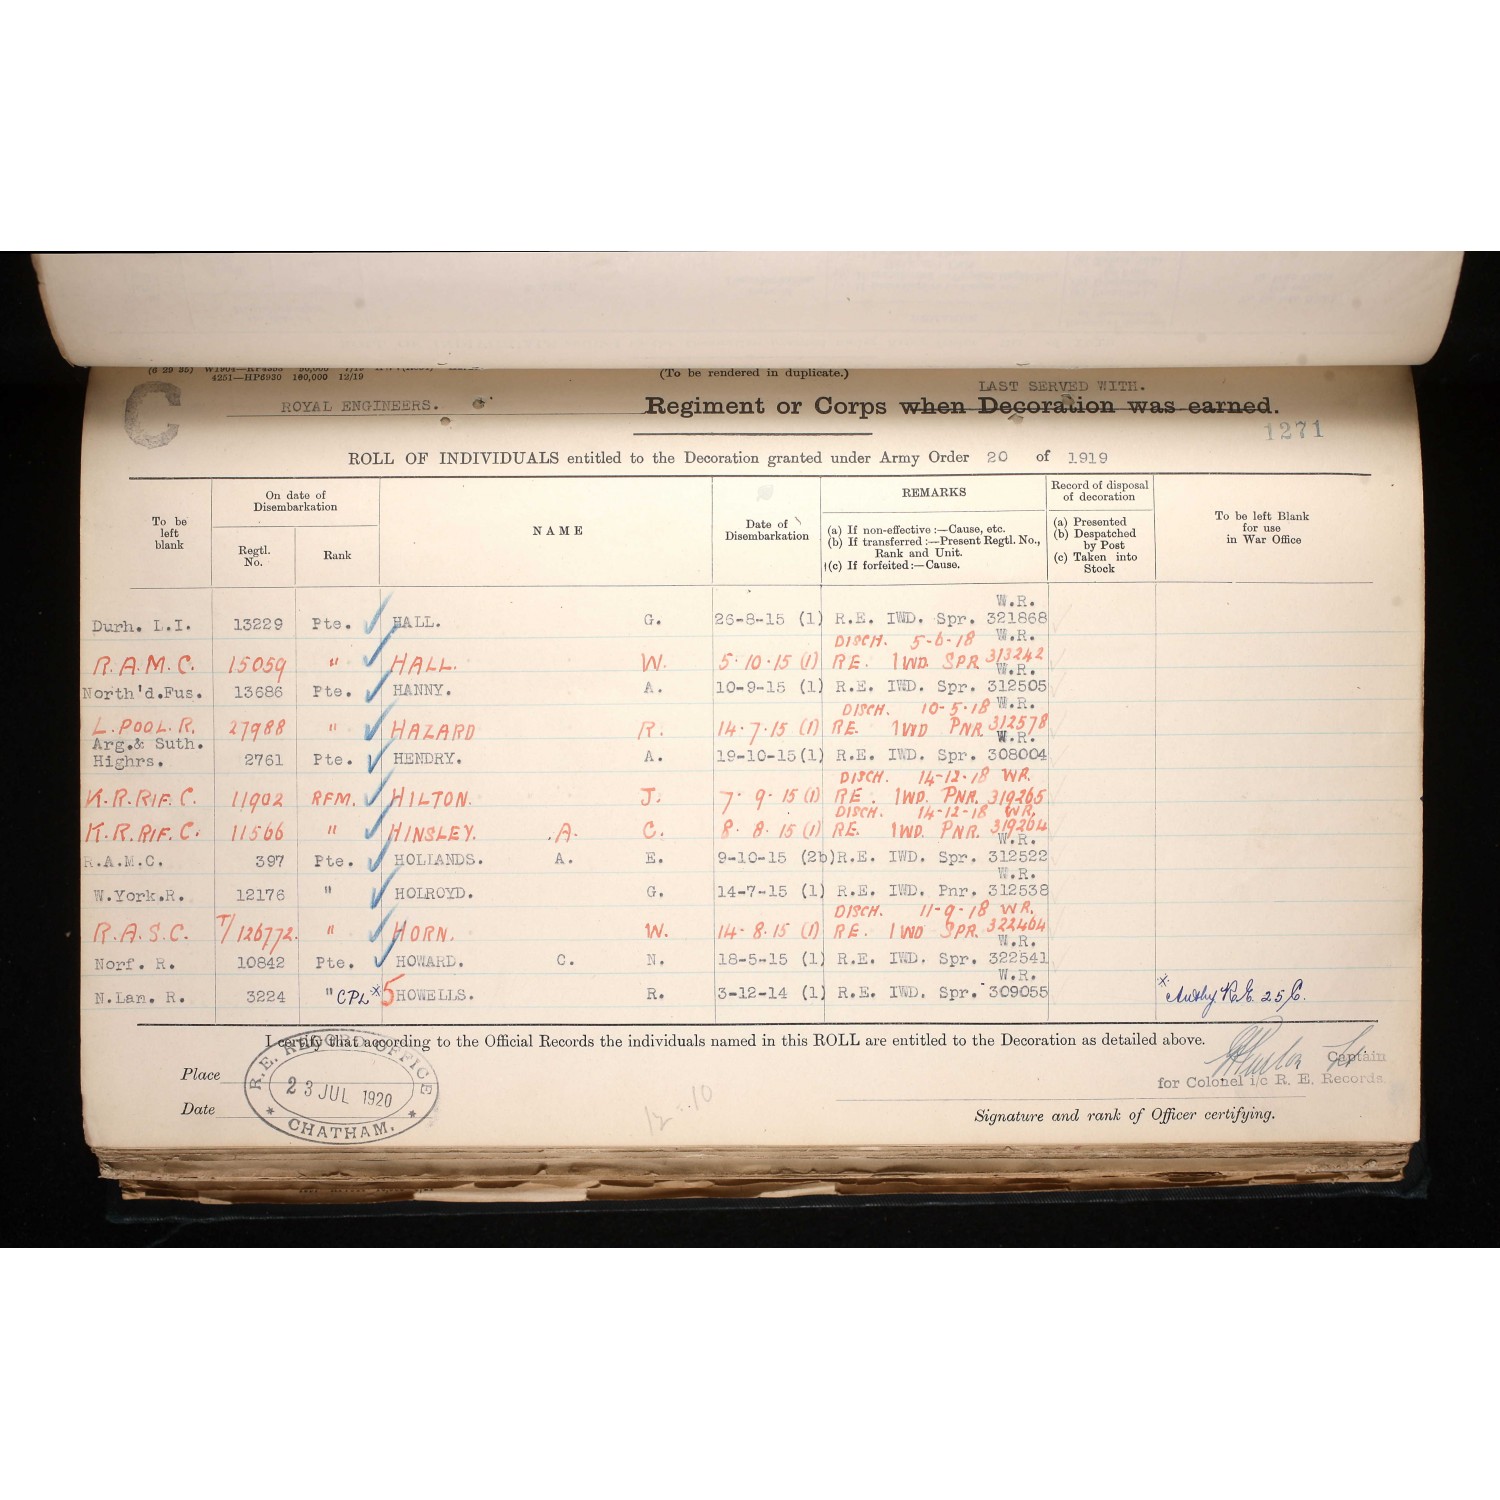 4251—HP6930 100,000 12/19
(To be rendered in duplicate.)
C
LAST SERVED WITH.
ROYAL ENGINEERS. Regiment or Corps when Decoration was earned.
1271
ROLL OF INDIVIDUALS entitled to the Decoration granted under Army Order 20 of 1919
To be left blank
On date of Disembarkation
Regtl. No.
Rank
NAME
Date of Disembarkation
REMARKS
(a) If non-effective :—Cause, etc.
(b) If transferred :—Present Regtl. No., Rank and Unit.
(c) If forfeited :—Cause.
Record of disposal of decoration
(a) Presented
(b) Despatched by Post
(c) Taken into Stock
To be left Blank for use in War Office
W.R.
Durh. L.I. 13229 Pte. HALL. G. 26-8-15 (1) R.E. IWD. Spr. 321868
DISCH. 5-6-18 W.R.
R.A.M.C. 15059 " HALL. W. 5.10.15 (1) RE. IWD. SPR 313242
W.R.
North'd.Fus. 13686 Pte. HANNY. A. 10-9-15 (1) R.E. IWD. Spr. 312505
DISCH. 10-5-18 W.R.
L.POOL.R. 27988 " HAZARD R. 14.7.15 (1) RE. IWD PNR 312578
W.R.
Arg.& Suth.
Highrs. 2761 Pte. HENDRY. A. 19-10-15(1) R.E. IWD. Spr. 308004
DISCH. 14-12-18 WR.
K.R.RIF.C. 11902 RFM. HILTON. J. 7.9.15 (1) RE. IWD. PNR. 319265
DISCH. 14-12-18 WR.
K.R.RIF.C. 11566 " HINSLEY. A. C. 8.8.15 (1) RE. IWD. PNR. 319264
W.R.
R.A.M.C. 397 Pte. HOLLANDS. A. E. 9-10-15 (2b) R.E. IWD. Spr. 312522
W.R.
W.York.R. 12176 " HOLROYD. G. 14-7-15 (1) R.E. IWD. Pnr. 312538
DISCH. 11-9-18 WR.
R.A.S.C. T/126772. " HORN. W. 14-8.15 (1) RE. IWD SPR. 322464
W.R.
Norf. R. 10842 Pte. HOWARD. C. N. 18-5-15 (1) R.E. IWD. Spr. 322541
W.R.
N.Lan. R. 3224 " CPL* 5 HOWELLS. R. 3-12-14 (1) R.E. IWD. Spr. 309055 * Authy R.E. 25
I certify that according to the Official Records the individuals named in this ROLL are entitled to the Decoration as detailed above.
Place
Date
R.E. RECORD OFFICE
23 JUL 1920
* CHATHAM. *
Captain
for Colonel i/c R. E. Records.
Signature and rank of Officer certifying.